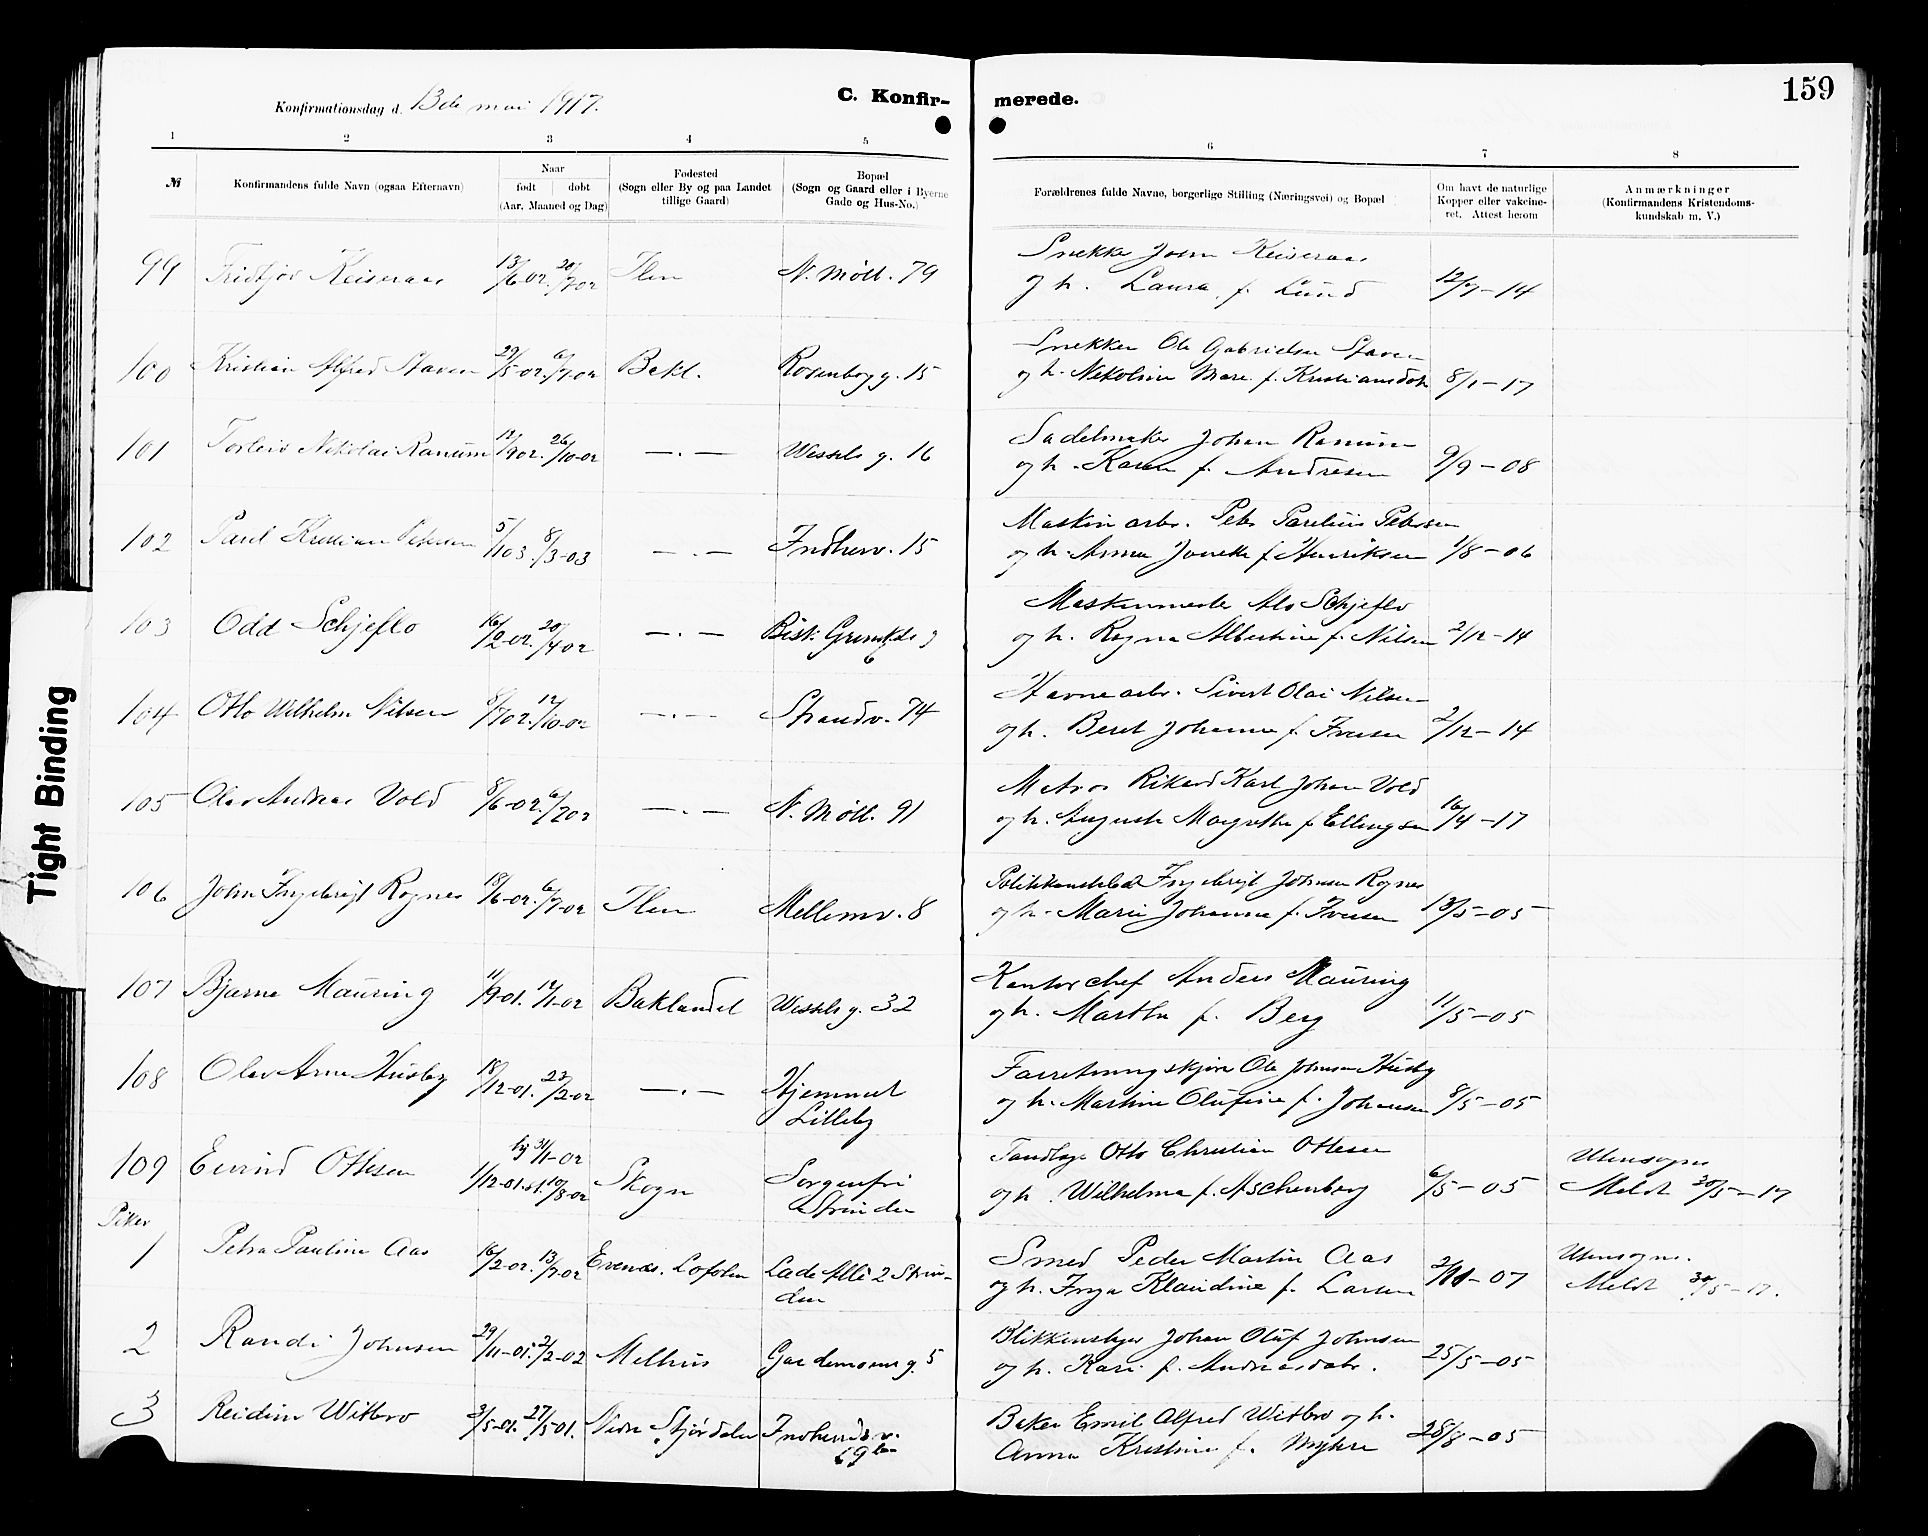 159
Konfirmationsdag d. 13de mai 1917.
C. Konfir-
merede.
1 2 3 4 5 6 7 8
№
Konfirmandens fulde Navn (ogsaa Efternavn)
Naar
født døbt
(Aar, Maaned og Dag)
Fødested
(Sogn eller By og paa Landet
tillige Gaard)
Bopæl
(Sogn og Gaard eller i Byerne
Gade og Hus-No.)
Forældrenes fulde Navne, borgerlige Stilling (Næringsvei) og Bopæl
Om havt de naturlige
Kopper eller vakcine-
ret. Attest herom
Anmærkninger
(Konfirmandens Kristendoms-
kundskab m. V.)
99 Fridtjov Keiseraas 13/6-02. 20/7 02 Ilen N. Møll. 79
Snekker Johan Keiseraas
og h. Laura f. Lund 12/7-14
100 Kristian Alfred Staven 29/5-02. 6/7-02 Bakl. Rosenborg g. 15
Snekker Ole Gabrielsen Staven
og h. Nekoline Mare f. Kristiansdatr 8/1-17
101 Torleiv Nikolai Ranum 12/9 02. 26/10-02 —.— Wessels g. 16
Sadelmaker Johan Ranum
og h. Karen f. Andresen 9/9-08
102 Paul Kristian Petersen 5/1 03. 8/3-03 —.— Indherv. 15
Maskinarb. Peter Parelius Petersen
og h. Anna Jonette f. Henriksen 1/8-06
103 Odd Schjeflo 16/2-02. 20/4 02 —.— Bisk. Grimkels g
6
Maskinmester Schjeflo
og h. Ragna Albertine f. Nilsen 2/12-14
104 Otto Wilhelm Nilsen 8/7 02. 12/10-02 —.— Strandv. 74
Havnearb. Sivert Olai Nilsen
og h. Beret Johanna f. Iversen 2/12-14
105 Olav Andreas Vold 8/6-02. 6/7 02 —.— N. Møll. 91
Matros Rikard Karl Johan Vold
og h. Augusta Margrethe f. Ellingsen 16/4-17
106 John Ingebrigt Rognes 18/6-02. 6/7-02 Ilen Mellemv. 8
Politikonstabel Ingebrigt Johnsen Rognes
og h. Marie Johanna f. Iversen 13/5-05
107 Bjarne Mauring 11/9-01. 12/1-02 Baklandet Wessels g. 32
Kontorchef Anders Mauring
og h. Martha f. Berg 11/5-05
108 Olav Arne Husby 18/12-01. 23/2-02 —.— Hjemmet
Lilleby
Forretningskjører Ole Johnsen Husby
og h. Martine Olufine f. Johansen 8/5-05
109 Eivind Ottesen hj 31/1-02
1/12-01. st. 10/8-02 Skogn Sorgenfri
Strinden
Tandlæge Otto Christian Ottesen
og h. Wilhelma f. Aschenberg 6/5-05
Utensogns
Meldt 30/5-17
Piker
1 Petra Pauline Aas 16/2-02. 13/7-02 Evenes. Lofoten Lade Allé 2 Strin-
den
Smed Peder Martin Aas
og h. Inga Klaudine f. Larsen 2/11-07
Utensogns.
Meldt 30/5-17.
2 Randi Johnsen 29/11-01. 2/2-02 Melhus Gardemoens g. 5
Blikkenslager Johan Oluf Johnsen
og h. Kari f. Andreasdatr. 25/5-05
3 Reidun Witbro 3/5-01. 27/5 01. Nedre Stjørdalen Indherredsv.
69b
Baker Emil Alfred Witbro og h.
Anna Kristine f. Myhre 28/8-05
Tight Binding